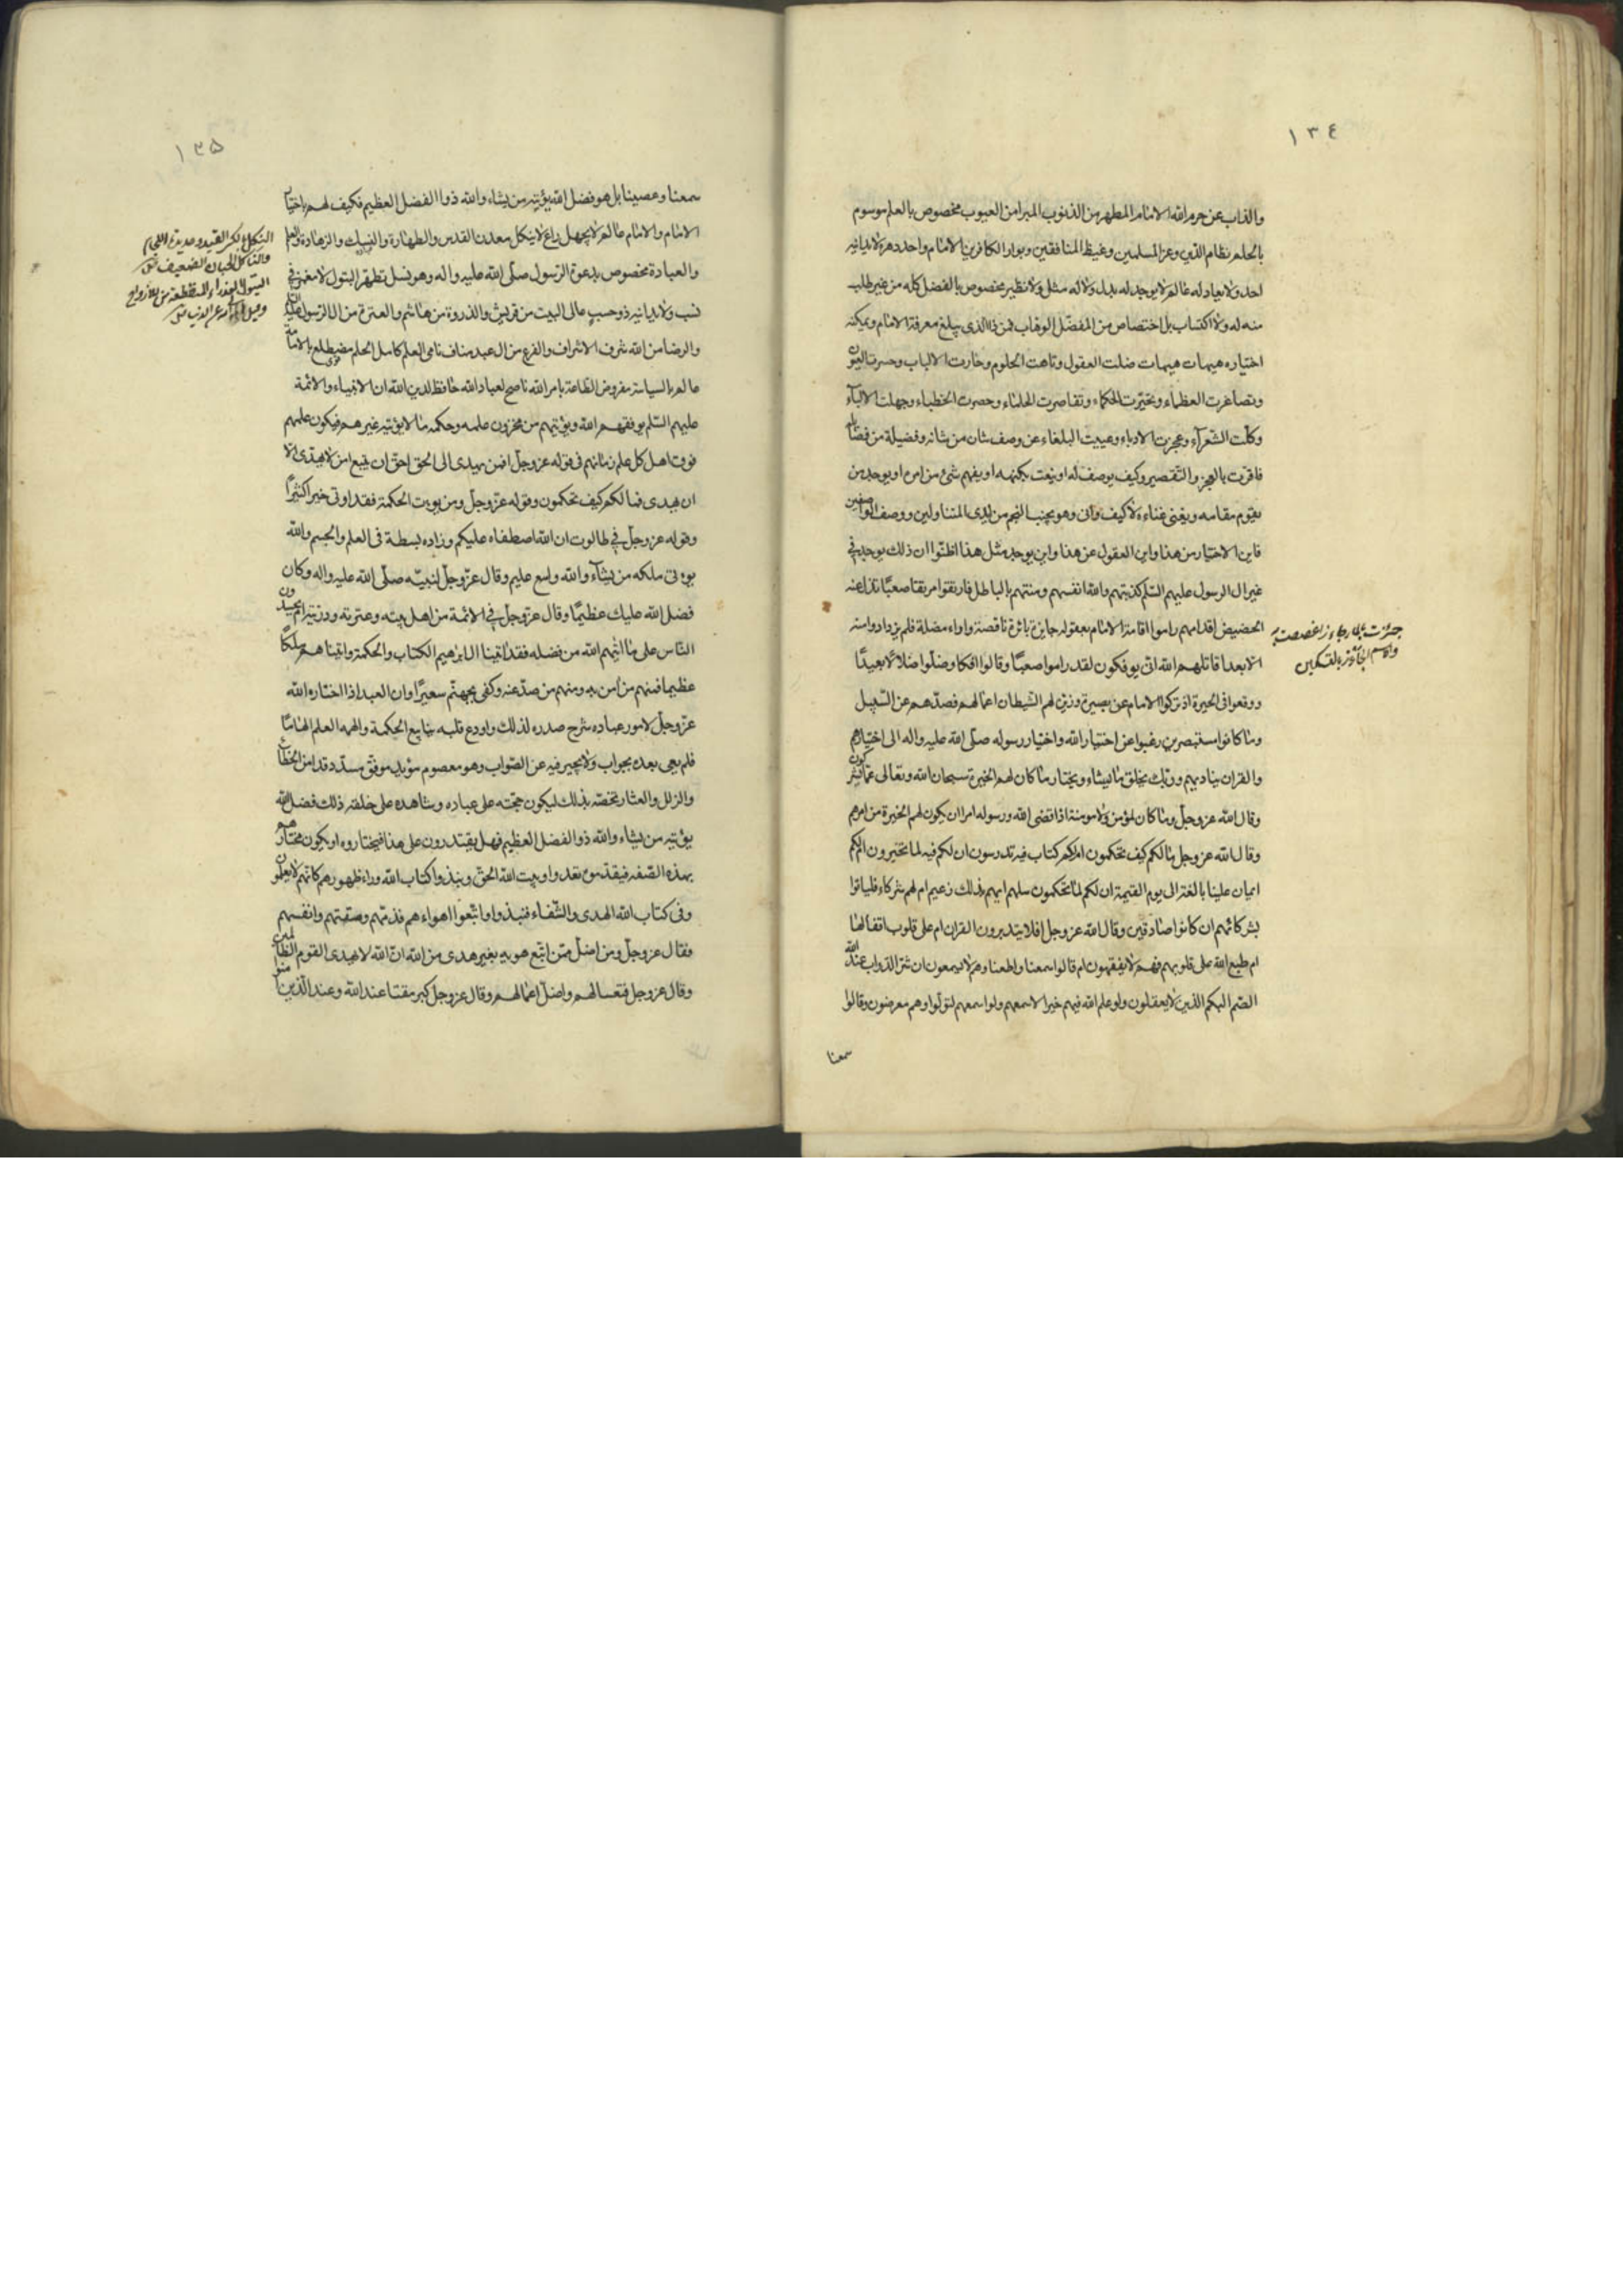 ١٣٤
والذاب عن حرم الله الامام المطهر من الذنوب المبرا من العيوب مخصوص بالعلم موسوم
بالحلم نظام الدين وعز المسلمين وغيظ المنافقين وبوار الكافرين الامام واحد دهره لا يدانيه
احد ولا يعادله عالم ولا يوجد له بدل ولا له مثل ولا نظير مخصوص بالفضل كله من غير طلب
منه له ولا اكتساب بل اختصاص من المفضّل الوهاب فمن ذا الذى يبلغ معرفة الامام ويمكنه
اختياره هيهات هيهات ضلت العقول وتاهت الحلوم وحارت الالباب وحسرت العيون
وتصاغرت العظماء وتحيّرت الحكماء وتقاصرت الحلماء وحصرت الخطباء وجهلت الالبآء
وكلّت الشّعرآء وعجزت الادباء وعييت البلغاء عن وصف شان من شانه وفضيلة من فضائله
فاقرت بالعجز والتّقصير وكيف يوصف له او ينعت بكنهه او يفهم شئ من امره او يوجد من
يقوم مقامه ويغنى غناءه لا كيف وانى وهو بحيث النجم من ايدى المتناولين ووصف الواصفين
فاين الاختيار من هذا واين العقول عن هذا واين يوجد مثل هذا اظنّوا ان ذلك يوجد فى
غير ال الرسول عليهم السّلم كذبتهم والله انفسهم ومنتهم بالباطل فارتقوا مرتقا صعبًا تذل عنه
الحضيض اقدامهم راموا اقامة الامام بعقول حايرة بائرة ناقصة واراء مضلة فلم يزدادوا منه
الا بعدا قاتلهم الله انّى يوفكون لقد راموا صعبًا وقالوا افكا وضلّوا ضلالا بعيدًا
ووقعوا فى الحيرة اذ تركوا الامام عن بصيرة وزيّن لهم الشيطان اعمالهم فصدّهم عن السّبيل
وما كانوا مستبصرين رغبوا عن اختيار الله واختيار رسوله صلّى الله عليه واله الى اختيارهم
والقران يناديهم وربّك يخلق ما يشاء ويختار ما كان لهم الخيرة سبحان الله وتعالى عمّا يشركون
وقال الله عز وجل وما كان لمؤمن ولا مومنة اذا قضى الله ورسوله امرا ان يكون لهم الخيرة من امرهم
وقال الله عز وجل مالكم كيف تحكمون ام لكم كتاب فيه تدرسون ان لكم فيه لما تخيرون ام لكم
ايمان علينا بالغة الى يوم القيمة ان لكم لما تحكمون سلهم ايهم بذلك زعيم ام لهم شركاء فلياتوا
بشركائهم ان كانوا صادقين وقال الله عز وجل افلا يتدبرون القران ام على قلوب اقفالها
ام طبع الله على قلوبهم فهم لا يفقهون ام قالوا سمعنا واطعنا وهم لا يسمعون ان شرّ الدواب عند الله
الصّم البكم الذين لا يعقلون ولو علم الله فيهم خيرا لاسمعهم ولو اسمعهم لتولّوا وهم معرضون وقالوا
سمعنا
١٣٥
سمعنا وعصينا بل هو فضل الله يؤتيه من يشاء والله ذو الفضل العظيم فكيف لهم باختيار
الامام والامام عالم لا يجهل راع لا ينكل معدن القدس والطهارة والنسك والزهادة والعلم
والعبادة مخصوص بدعوة الرسول صلّى الله عليه واله وهو نسل تطهر البتول لا مغمز فى
نسب ولا يدانيه ذو حسب عالى البيت من قريش والذروة من هاشم والعترة من ال الرسول
والرضا من الله شرف الاشراف والفرع من ال عبد مناف نامى العلم كامل الحلم مضطلع بالامامة
عالم بالسياسة مفروض الطاعة بامر الله ناصح لعباد الله حافظ لدين الله ان الانبياء والائمة
عليهم السّلم يوفقهم الله ويؤتيهم من مخزون علمه وحكمه ما لا يؤتيه غيرهم فيكون علمهم
فوق اهل كل علم زمانهم فى قوله عز وجلّ افمن يهدى الى الحق احقّ ان يتبع امن لا يهدّى الا
ان يهدى فما لكم كيف تحكمون وقوله عزّ وجلّ ومن يوت الحكمة فقد اوتى خيرا كثيرًا
وقوله عز وجلّ فى طالوت ان الله اصطفاه عليكم وزاده بسطة فى العلم والجسم والله
يوتى ملكه من يشآء والله واسع عليم وقال عزّ وجلّ لنبيّه صلّى الله عليه واله وكان
فضل الله عليك عظيمًا وقال عزّ وجلّ فى الائمة من اهل بيته وعترته وذريّته ام يحسدون
النّاس على ما اتيهم الله من فضله فقد اتينا ال ابرهيم الكتاب والحكمة واتينا هم ملكًا
عظيما فمنهم من امن به ومنهم من صدّ عنه وكفى بجهنّم سعيرًا وان العبد اذا اختاره الله
عزّ وجلّ لامور عباده شرح صدره لذلك واودع قلبه ينابيع الحكمة والهمه العلم الهامًا
فلم يعى بعده بجواب ولا يحير فيه عن الصّواب وهو معصوم مؤيد موفّق مسدّد قد امن الخطايا
والزلل والعثار يخصّه بذلك ليكون حجّته على عباده وشاهده على خلقه ذلك فضل الله
يؤتيه من يشاء والله ذو الفضل العظيم فهل يقتدرون على هذا فيختاروه او يكون مختارهم
بهذه الصّفة فيقدّمونه تعدوا وبيت الله الحقّ ونبذوا كتاب الله وراء ظهورهم كانّهم لا يعلمون
وفى كتاب الله الهدى والشّفاء فنبذوا واتّبعوا اهواءهم فذمّهم ومقتهم وانفسهم
فقال عز وجلّ ومن اضلّ ممّن اتّبع هويه بغير هدى من الله انّ الله لا يهدى القوم الظالمين
وقال عز وجل فتعسا لهم واضلّ اعمالهم وقال عز وجل كبر مقتا عند الله وعند الّذين امنوا